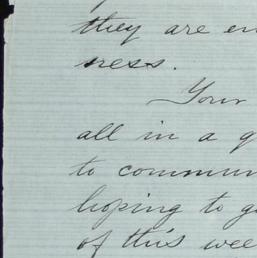 they are en
ness.
Your
all in a q
to commun
hoping to g
of this wee